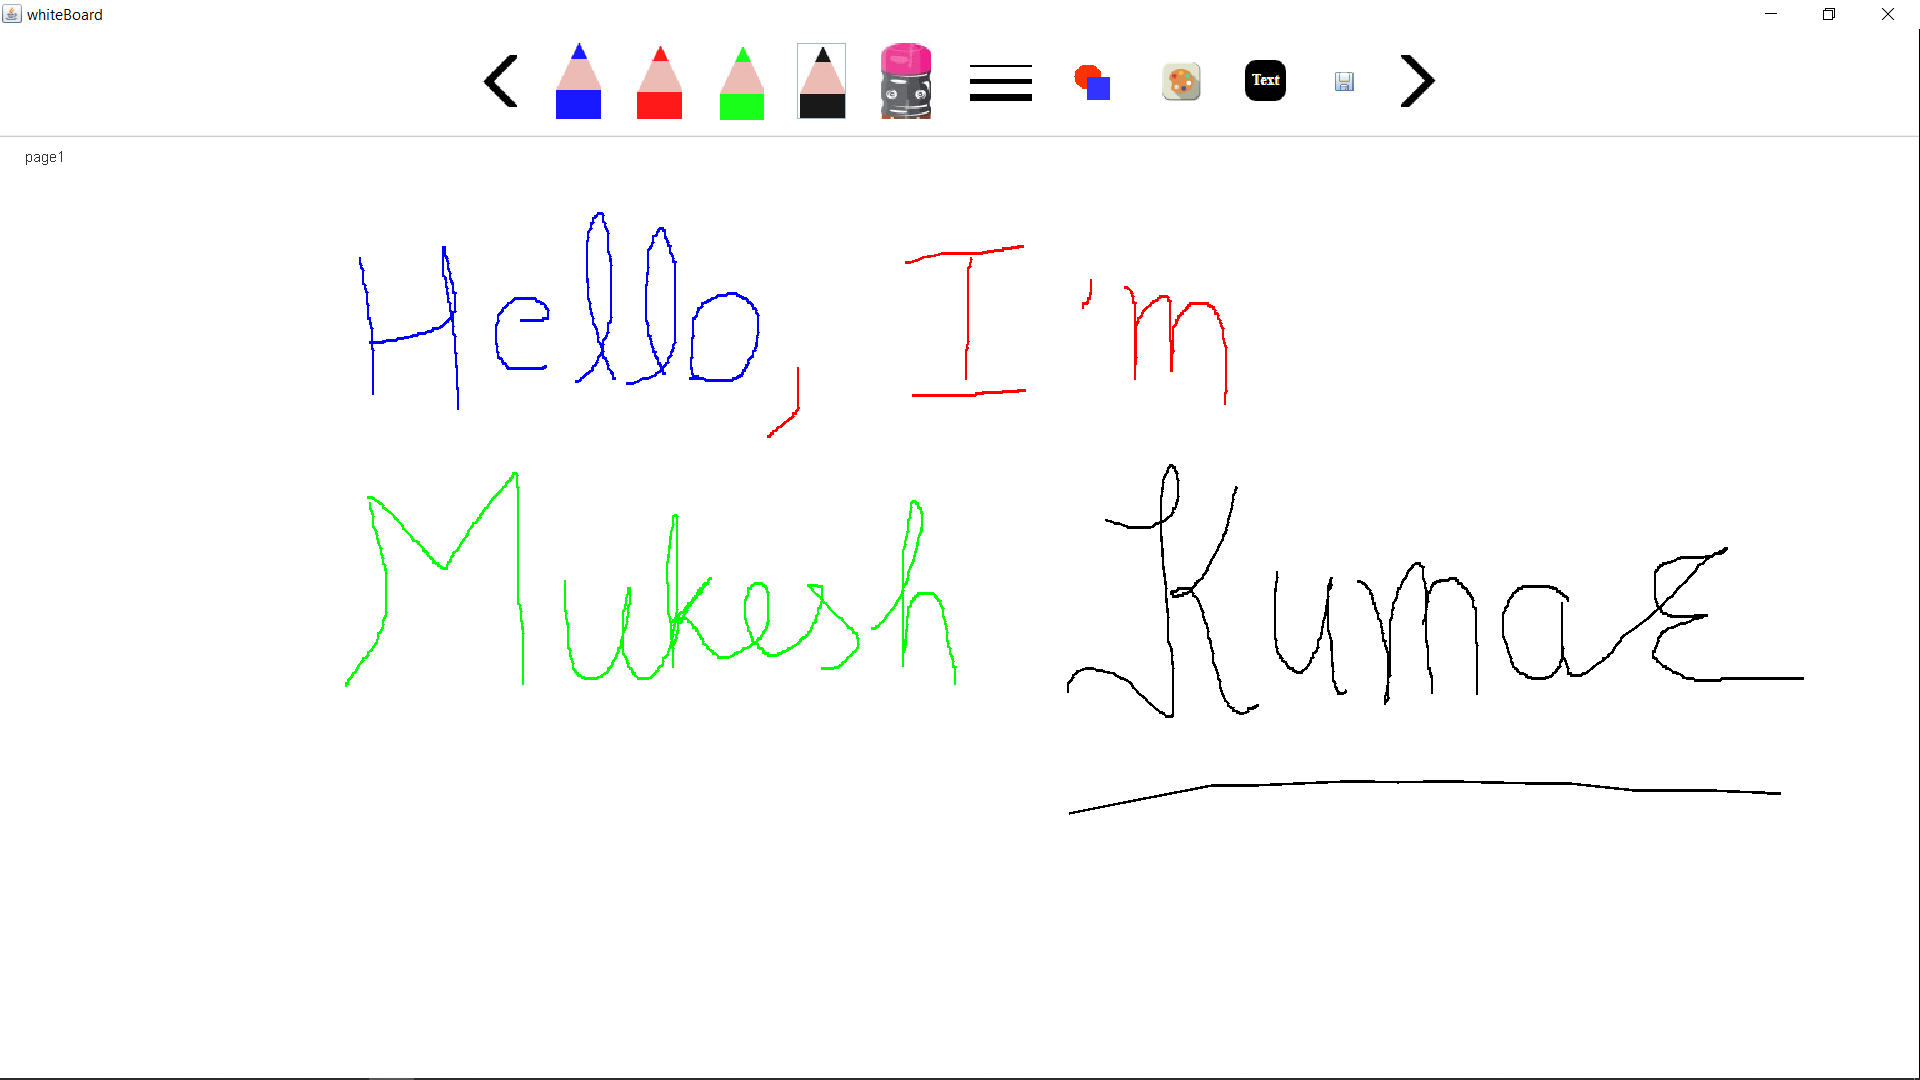 whiteBoard
Text
page1
Hello, I'm
Mukesh Kumar